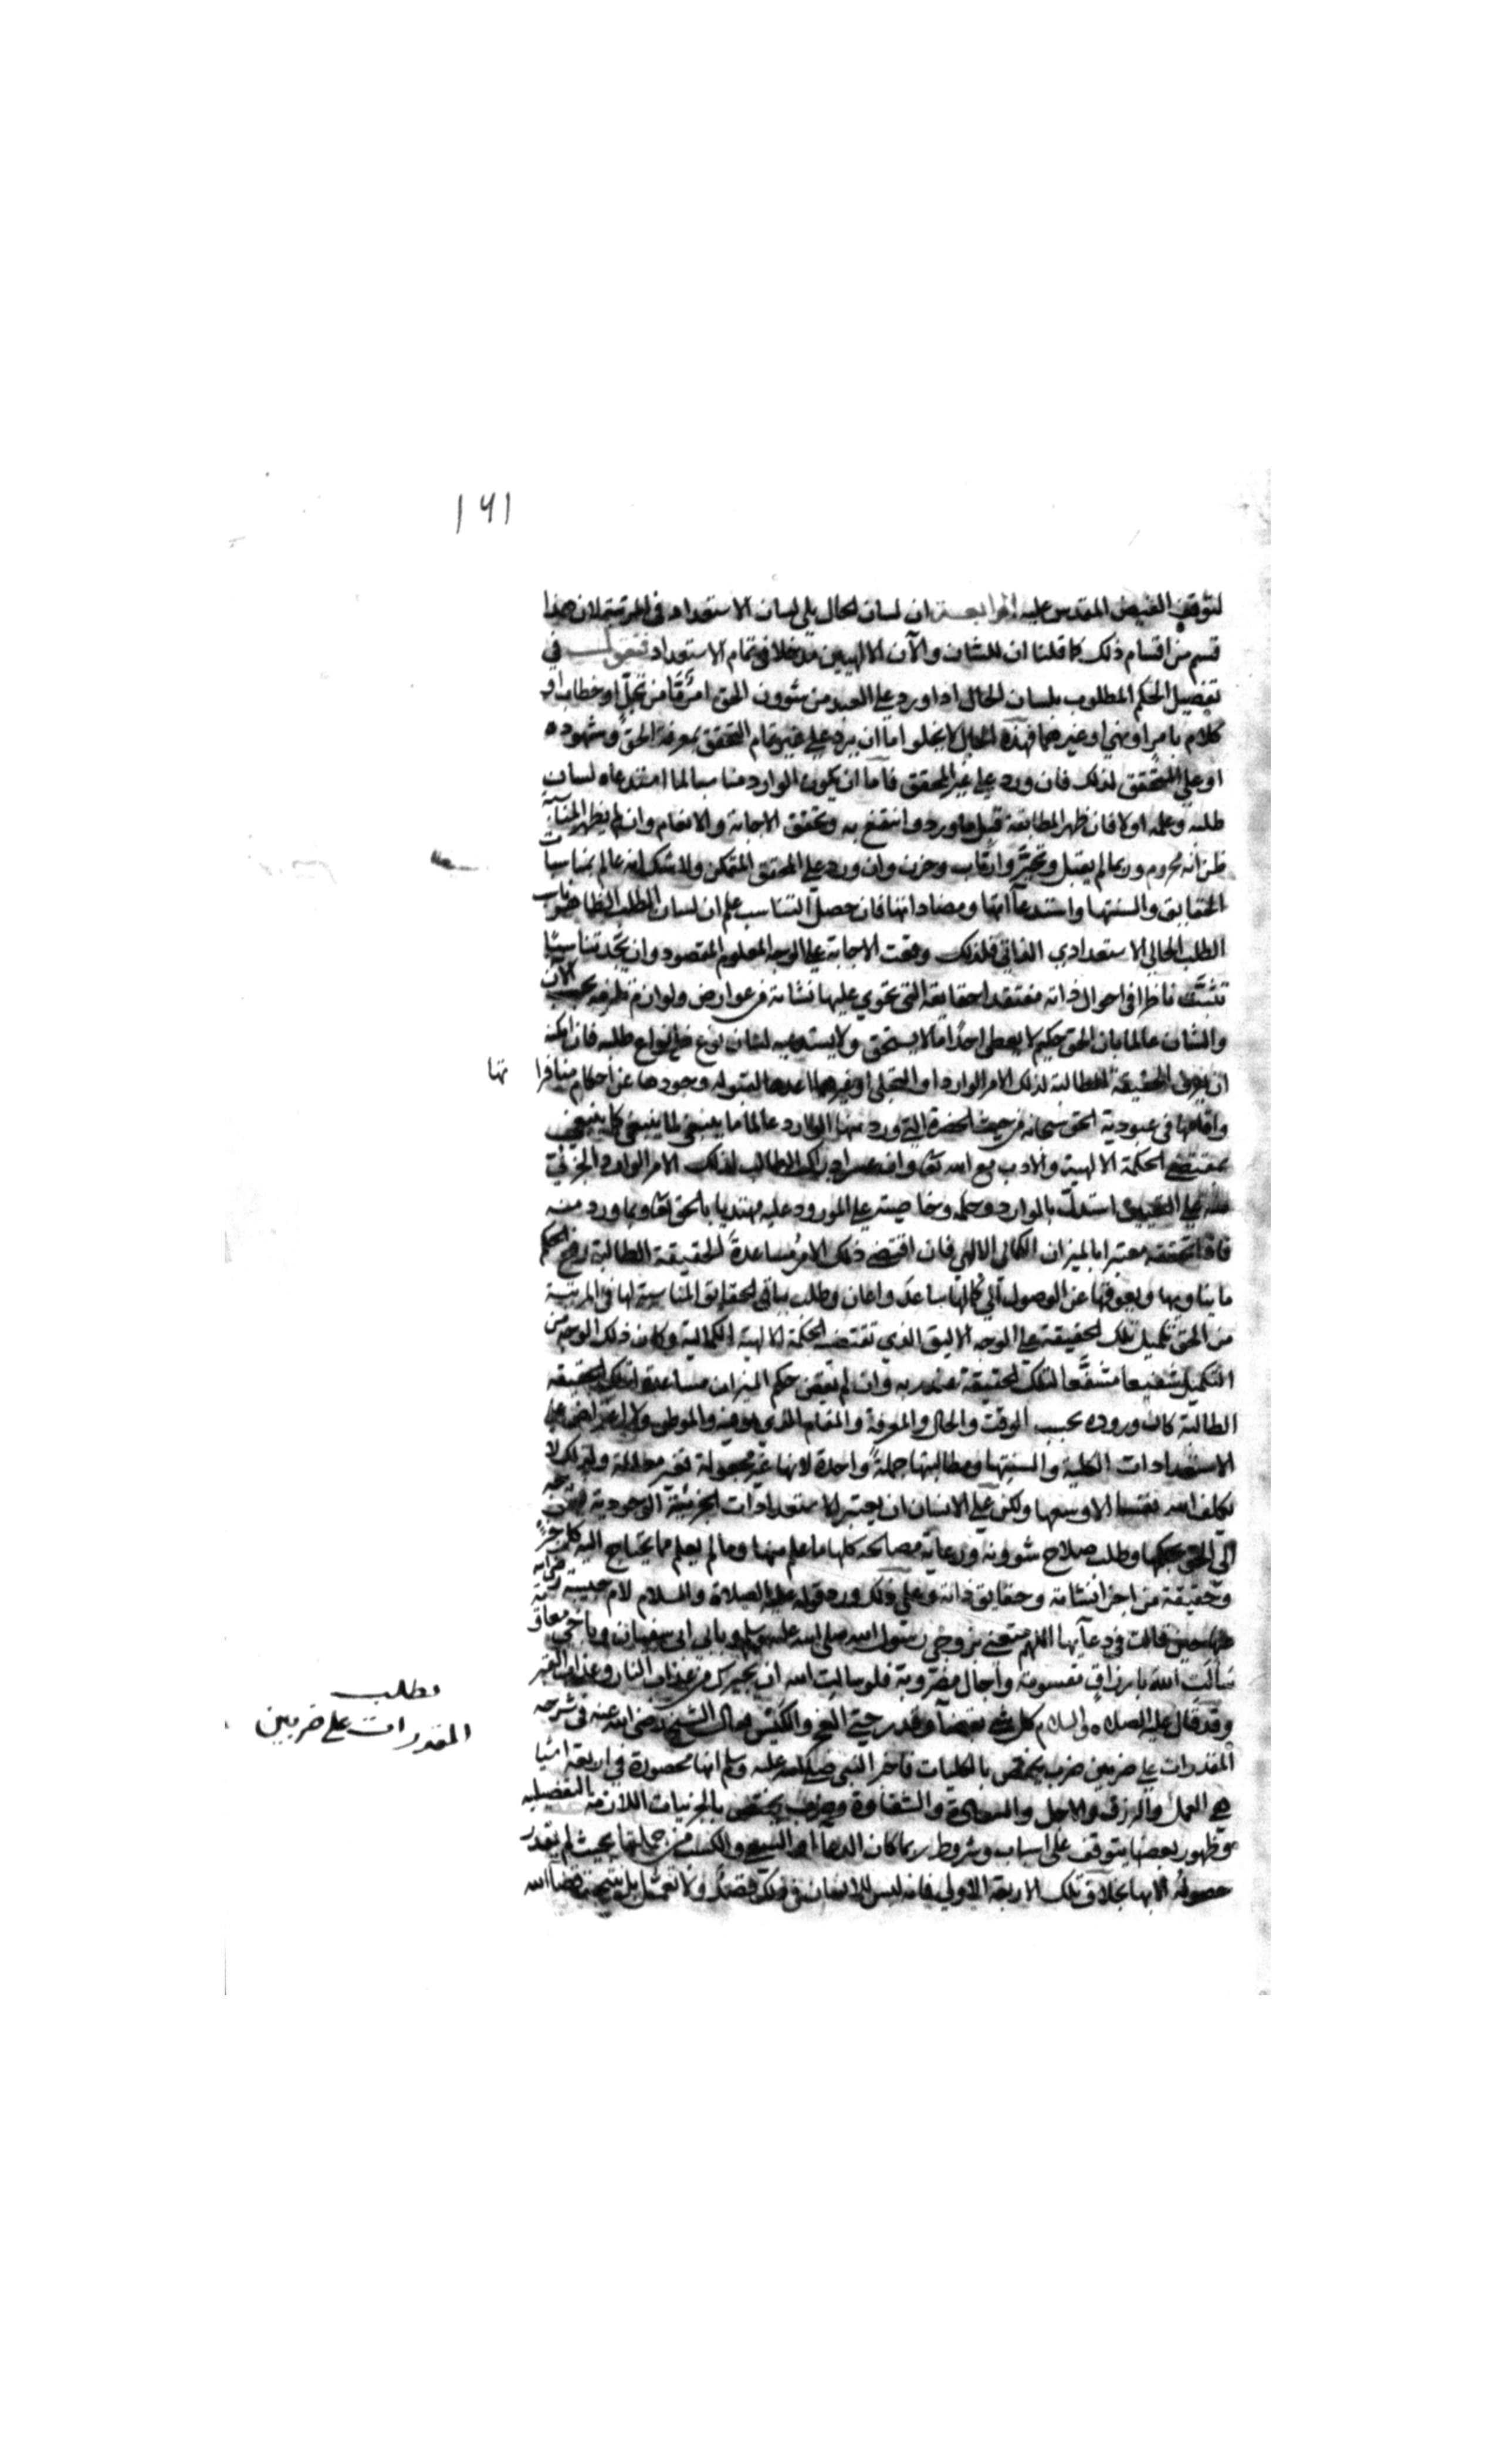 ١٦١
لتوقف الفيض المقدس عليه الرابعة ان لسان الحال يلي لسان الاستعداد في المرتبة لان هذا
قسم من اقسام ذلك كما قلنا ان للشان والآن الالهيين مدخلا في تمام الاستعداد فنقول في
تفصيل الحكم المطلوب بلسان الحال اذا ورد علي العبد من شوون الحق امر ما من تجل او خطاب او
كلام بامر او نهي او غيرهما فهذه الحال لا يخلو اما ان يرد علي غير تام التحقق بمعرفة الحق وشهوده
او علي المتحقق لذلك فان ورد علي غير المحقق فاما ان يكون الوارد مناسبا لما استدعاه لسان
طلبه وعلمه اولا فان ظهر المطابقة قبل ما ورد وانتفع به وتحقق الاجابة والانعام وان لم يظهر المناسبة
ظن انه محروم وربما لم يقبل وتحير وارتاب وحزن وان ورد علي المحقق المتمكن ولا شك انه عالم بمناسبات
الحقايق والسنتها واستدعاآتها ومضاداتها فان حصل التناسب علم ان لسان الطلب الظاهر ناسب
الطلب الحالي الاستعدادي الذاتي فلذلك وقعت الاجابة علي الوجه المعلوم المقصود وان لم يجد تناسبا
تثبت ناظرا في احوال ذاته مفتقدا حقايقه التي تحوي عليها نشاته من عوارض ولوازم ظرفه بحسب الآن
والشان عالما بان الحق حكيم لا يعطي احدا ما لا يستحق ولا يستدعيه لسان نوع من انواع طلبه فان امكنه
ان يعرف الحقيقة المطالبة لذلك الامر الوارد او التجلي او غيرهما اعدها لقبوله وجودها عن احكام منافراتها
واقامها في عبودية الحق سبحانه من حيث الحضرة التي ورد منها الوارد عالما ما ينبغي لما ينبغي كما ينبغي
بمقتضي الحكمة الالهية والادب مع الله تعالى وان عسر ادراك الطالب لذلك الامر الوارد الجزئي
منه علي التعيين استدل بالوارد وحكمه وخاصيته علي المورود عليه مهتديا بالحق تعالى وبما ورد منه
فاذا تحققه معتبرا بالميزان الكمالي الالهي فان اقتضي ذلك الامر مساعدة الحقيقة الطالبة رفع حكم
ما يناويها ويعوقها عن الوصول الي كمالها ساعد واعان وطلب بباقي الحقايق المناسبة لها في المرتبة
من الحق تكميل تلك الحقيقة علي الوجه الاليق الذي تقتضيه الحكمة الالهية الكمالية وكان ذلك الوجه من
التكميل شفيعا مشفعا لتلك الحقيقة عند ربه وان لم يقتض حكم الميزان مساعدة تلك الحقيقة
الطالبة كان وروده بحسب الوقت والحال والمعرفة والمقام الذي هو فيه والموطن ولا اعتراض علي
الاستعدادات الكلية والسنتها ومطالبتها جملة واحدة لانها غير مجعولة فغير معللة ولذلك لا
يكلف الله نفسا الا وسعها ولكن علي الانسان ان يعتبر الاستعدادات الجزئية الوجودية فيتوجه
الي الحق بحكمها وطلب صلاح شوونه ورعاية مصالحه كلها ما علم منها وما لم يعلم مما يحتاج اليه كل جزء
وحقيقة من اجزا نشاته وحقايق ذاته وعلي ذلك ورد قوله عليه الصلاة والسلام لام حبيبة رضي الله
عنها حين قالت في دعآيها اللهم متعني بزوجي رسول الله صلى الله عليه وسلم وبابي ابي سفيان وباخي معاوية
سالت الله بارزاق مقسومة واجال مضروبة فلو سالت الله ان يجيرك من عذاب النار وعذاب القبر
وقد قال عليه الصلاة والسلام كل شي بقضآ وقدر حتي العجز والكيس وقال الشيخ رضي الله عنه في شرحه
المقدرات علي ضربين ضرب يختص بالكليات فاخبر النبي صلى الله عليه وسلم انها محصورة في اربعة اشيا
هي العمل والرزق والاجل والسعادة والشقاوة وضرب يختص بالجزئيات اللازمة التفصيلية
وظهور بعضها يتوقف علي اسباب وشروط ربما كان الدعا او السعي والكسب من جملتها بحيث لم يقدر
حصوله الا بها بخلاف تلك الاربعة الاولي فانه ليس للانسان في ذلك قصد ولا تعمل بل نتيجة قضا الله
مطلب
المقدرات علي ضربين